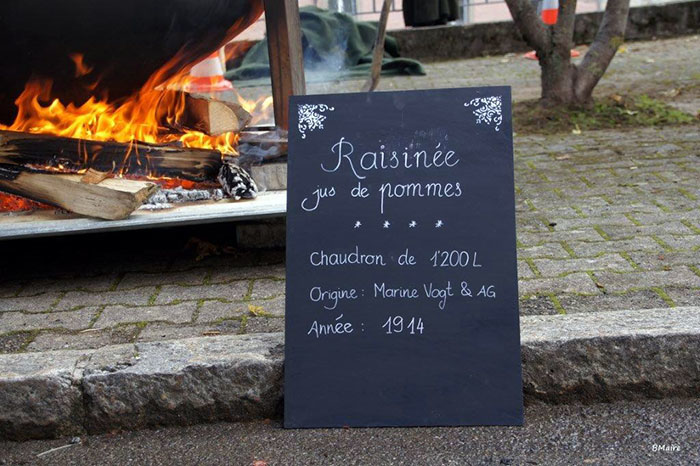 Raisinée
jus de pommes
* * * *
Chaudron de 1'200 L
Origine : Marine Vogt & AG
Année : 1914
BMaire